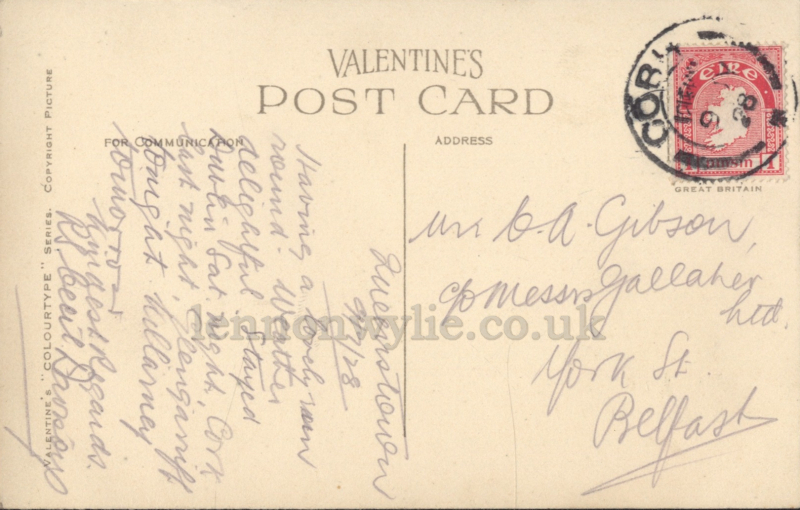 VALENTINE'S
POST CARD
FOR COMMUNICATION
ADDRESS
VALENTINE'S "COLOURTYPE" SERIES. COPYRIGHT PICTURE
GREAT BRITAIN
CORC
9
28
éire
1
Queenstown
9/7/28
Having a lovely run
round. Weather
delightful. Stayed
Dublin Sat night, Cork
last night, Glengarriff
tonight Killarney
tomorrow
Kindest Regards.
Cecil
C.A. Gibson,
c/o Messrs Gallaher
Ltd.
York St.
Belfast
lennonwylie.co.uk